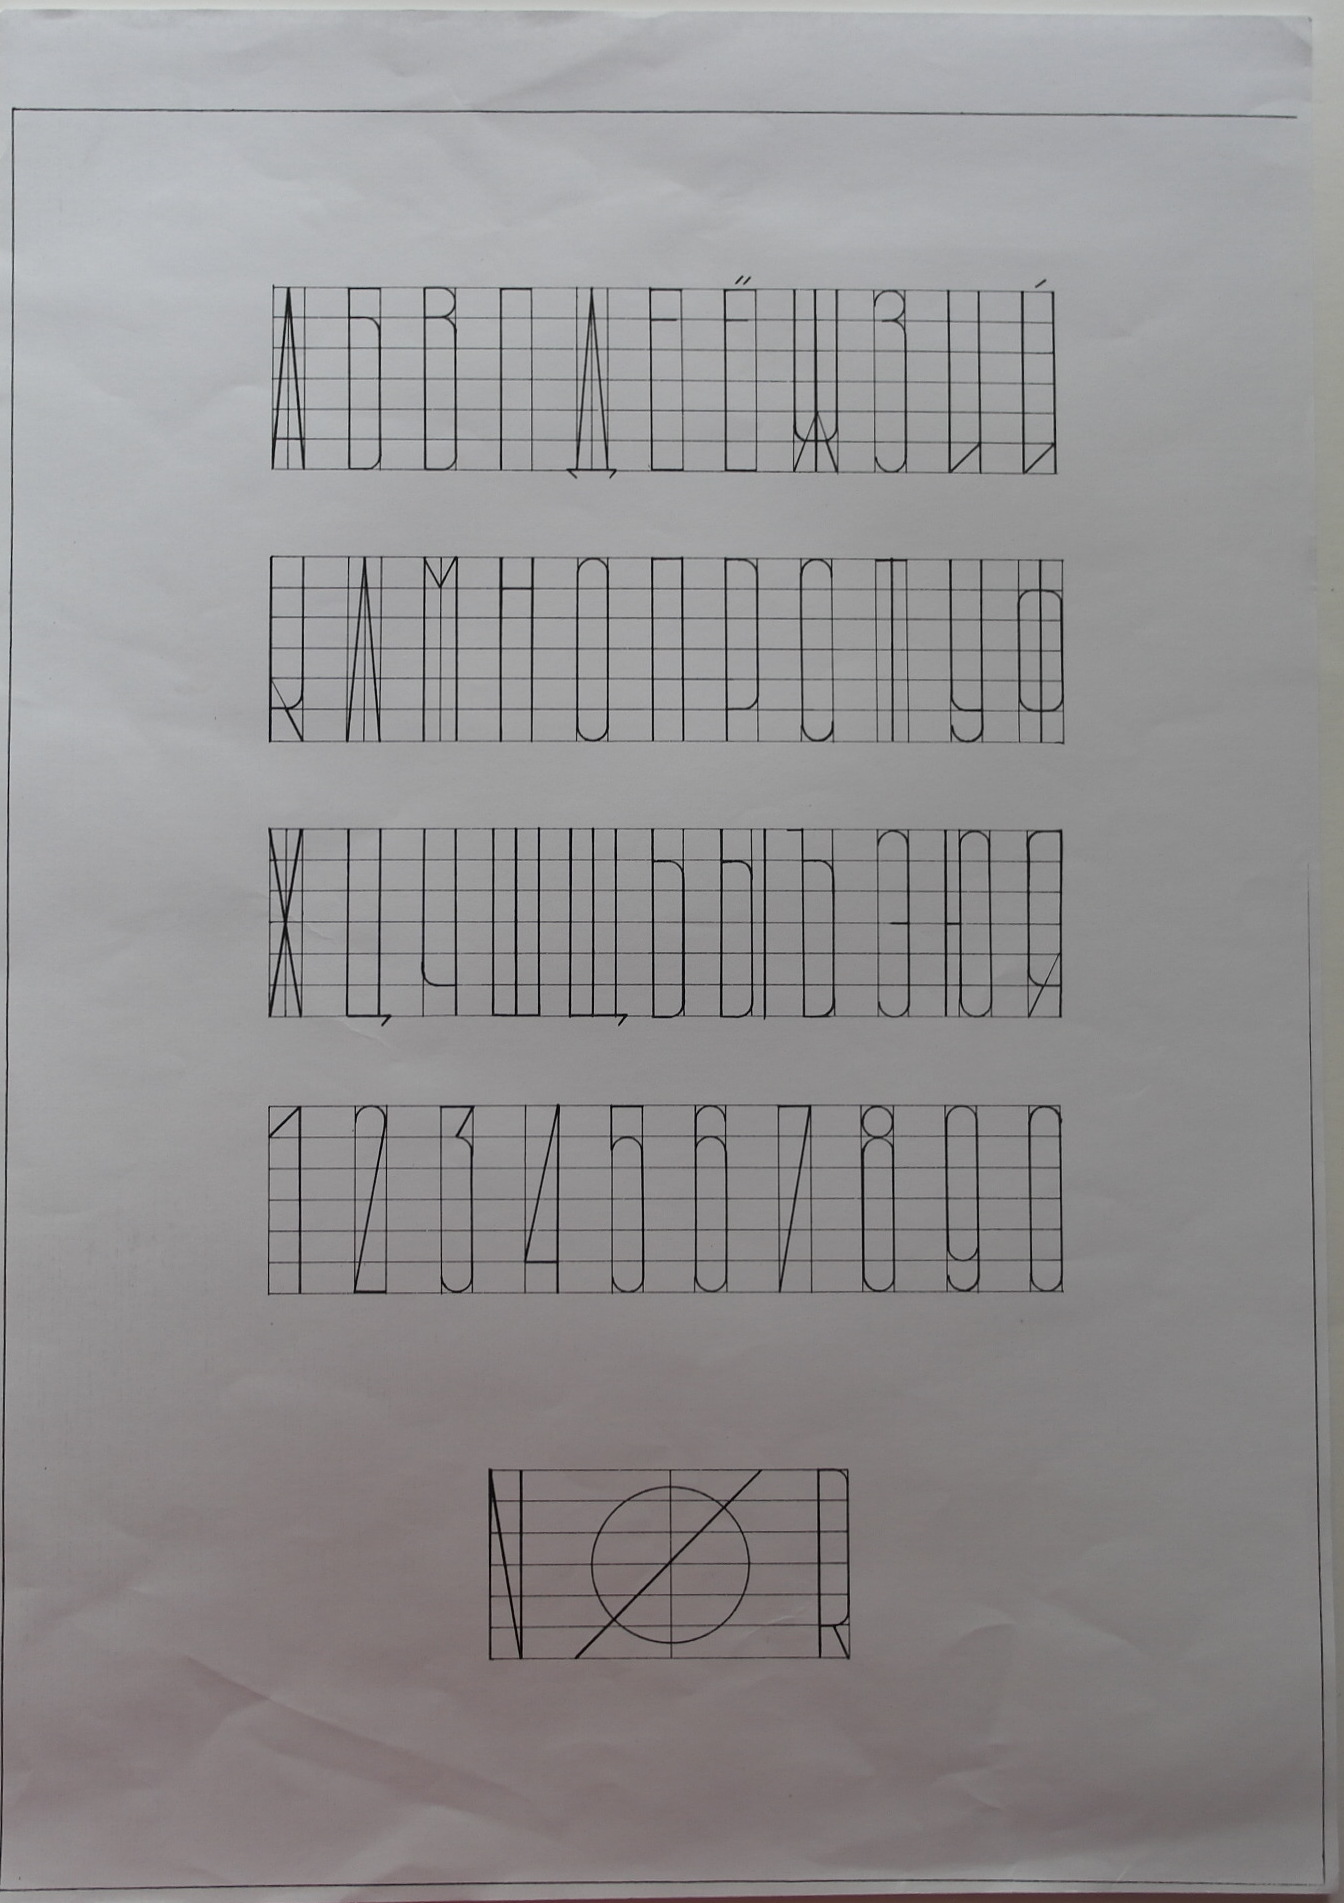 АБВГДЕЁЖЗИЙ
КЛМНОПРСТУФ
ХЦЧШЩЬЫЪЭЮЯ
1234567890
N R